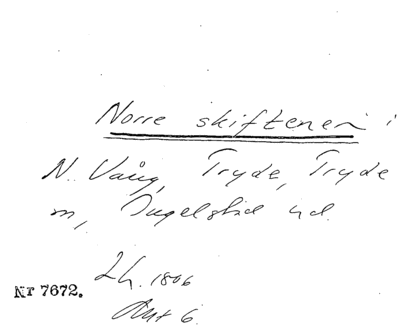 Norre skiftenen i
N. Vång, Tryde, Tryde
m, Ingelstad hd.
Lh. 1806
Akt 6
Nr 7672.